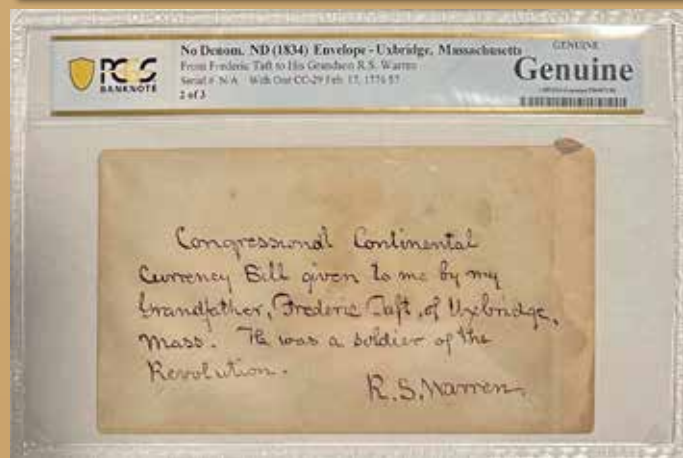 No Denom. ND (1834) Envelope - Uxbridge, Massachusetts
From Frederic Taft to His Grandson R.S. Warren
Serial # N/A With Cont CC-29 Feb. 17, 1776 $7
2 of 3
PCGS
BANKNOTE
GENUINE
Genuine
Congressional Continental
Currency Bill given to me by my
Grandfather, Frederic Taft, of Uxbridge,
Mass. He was a soldier of the
Revolution.
R.S. Warren.